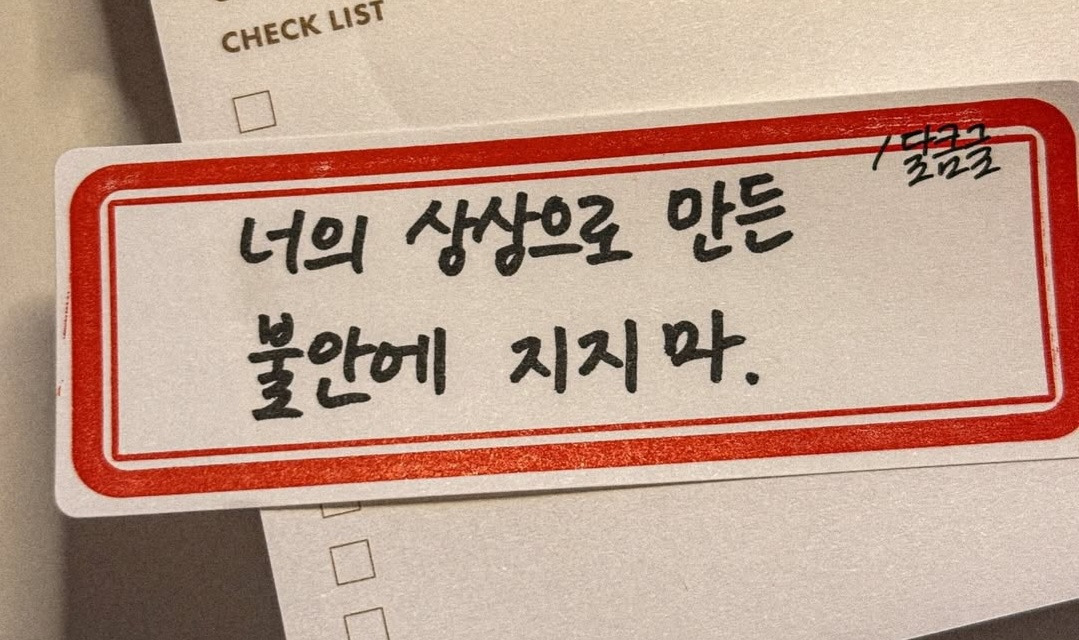 CHECK LIST
/달콤글
너의 상상으로 만든
불안에 지지 마.